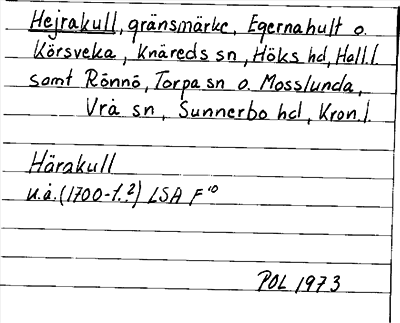 Hejrakull, gränsmärke, Egernahult o.
Körsveka, Knäreds sn, Höks hd, Hall.l.
samt Rönnö, Torpa sn o. Mosslunda,
Vrå sn, Sunnerbo hd, Kron.l.
Härakull
u.å. (1700-t.?) LSA F10
POL 1973